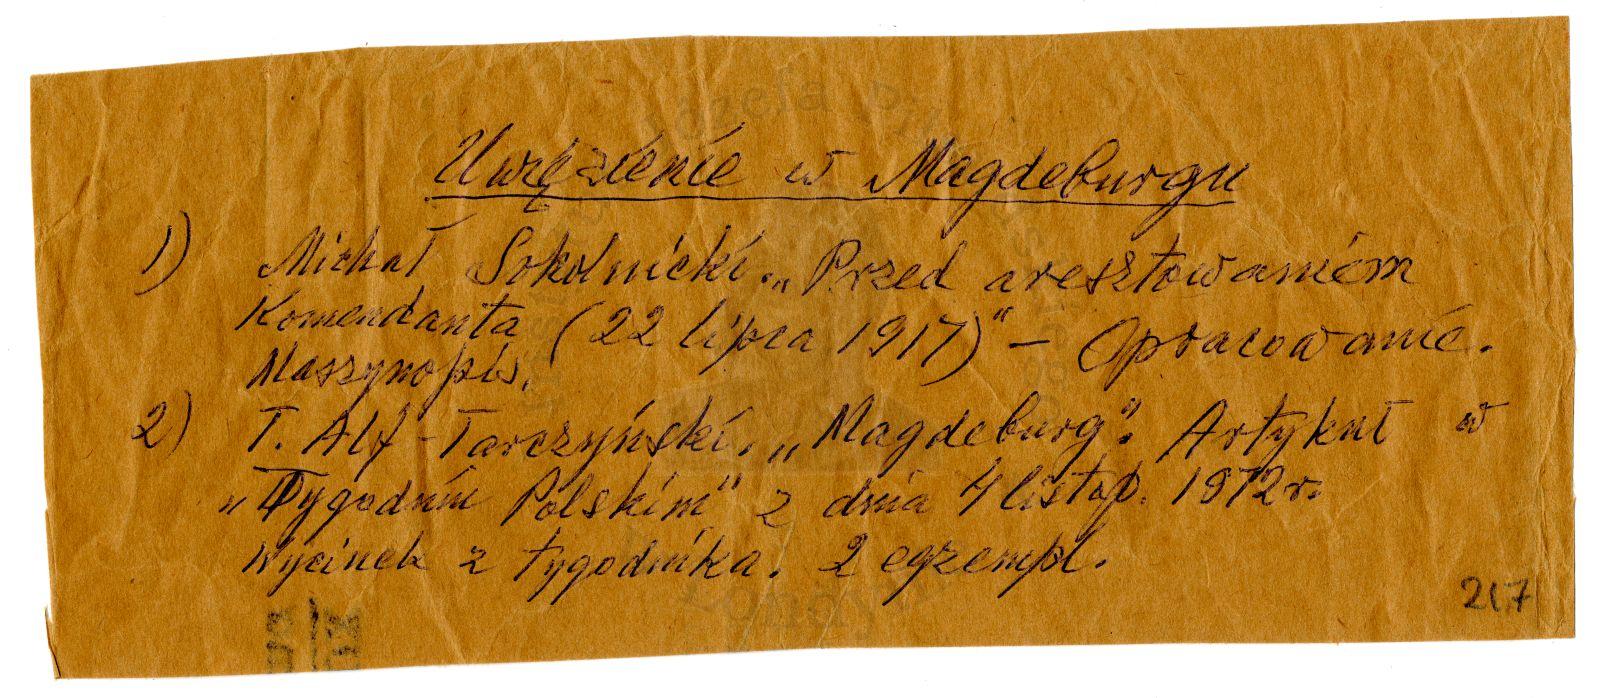 Uwięzienie w Magdeburgu
1) Michał Sokolnicki. „Przed aresztowaniem
Komendanta (22 lipca 1917)" – Opracowanie.
Maszynopis.
2) T. Alf-Tarczyński. „Magdeburg". Artykuł w
„Tygodniu Polskim" z dnia 4 listop. 1972 r.
Wycinek z tygodnika. 2 egzempl.
217